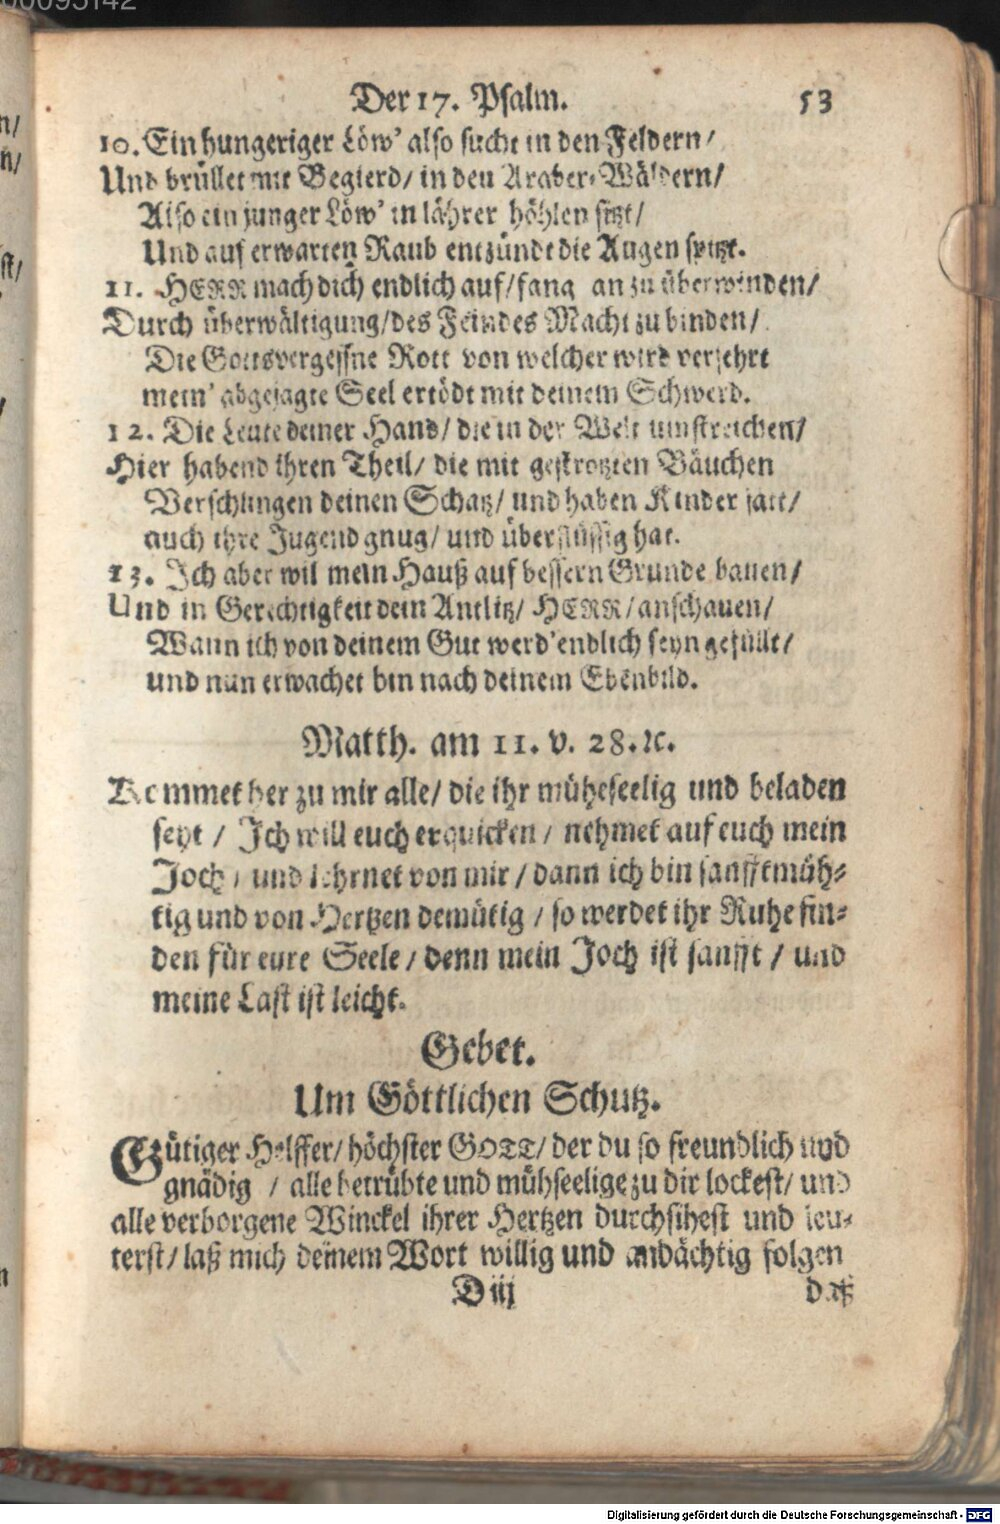 00095142
Der 17. Psalm. 53
10. Ein hungeriger Löw' also sucht in den Feldern/
Und brüllet mit Begierd/ in den Araber-Wäldern/
Also ein junger Löw' in lährer höhlen sitzt/
Und auf erwarten Raub entzündt die Augen spitzt.
11. HERR mach dich endlich auf/ fang an zu überwinden/
Durch überwältigung/ des Feindes Macht zu binden/
Die Gottsvergeßne Rott von welcher wird verzehrt
mein' abgejagte Seel ertödt mit deinem Schwerd.
12. Die Leute deiner Hand/ die in der Welt umstreichen/
Hier habend ihren Theil/ die mit gestrotzten Bäuchen
Verschlingen deinen Schatz/ und haben Kinder satt/
auch ihre Jugend gnug/ und überflüssig hat.
13. Ich aber wil mein Hauß auf bessern Grunde bauen/
Und in Gerechtigkeit dein Antlitz/ HERR/ anschauen/
Wann ich von deinem Gut werd' endlich seyn gefüllt/
und nun erwachet bin nach deinem Ebenbild.
Matth. am 11. v. 28. ꝛc.
Kommet her zu mir alle/ die ihr müheseelig und beladen
seyt / Ich will euch erquicken / nehmet auf euch mein
Joch / und lehrnet von mir / dann ich bin sanfftmüh-
tig und von Hertzen demütig / so werdet ihr Ruhe fin-
den für eure Seele / denn mein Joch ist sanfft / und
meine Last ist leicht.
Gebet.
Um Göttlichen Schutz.
Gütiger Helffer/ höchster GOTT/ der du so freundlich und
gnädig / alle betrübte und mühseelige zu dir lockest/ und
alle verborgene Winckel ihrer Hertzen durchsihest und leu-
terst/ laß mich deinem Wort willig und andächtig folgen
D iij daß
Digitalisierung gefördert durch die Deutsche Forschungsgemeinschaft - DFG